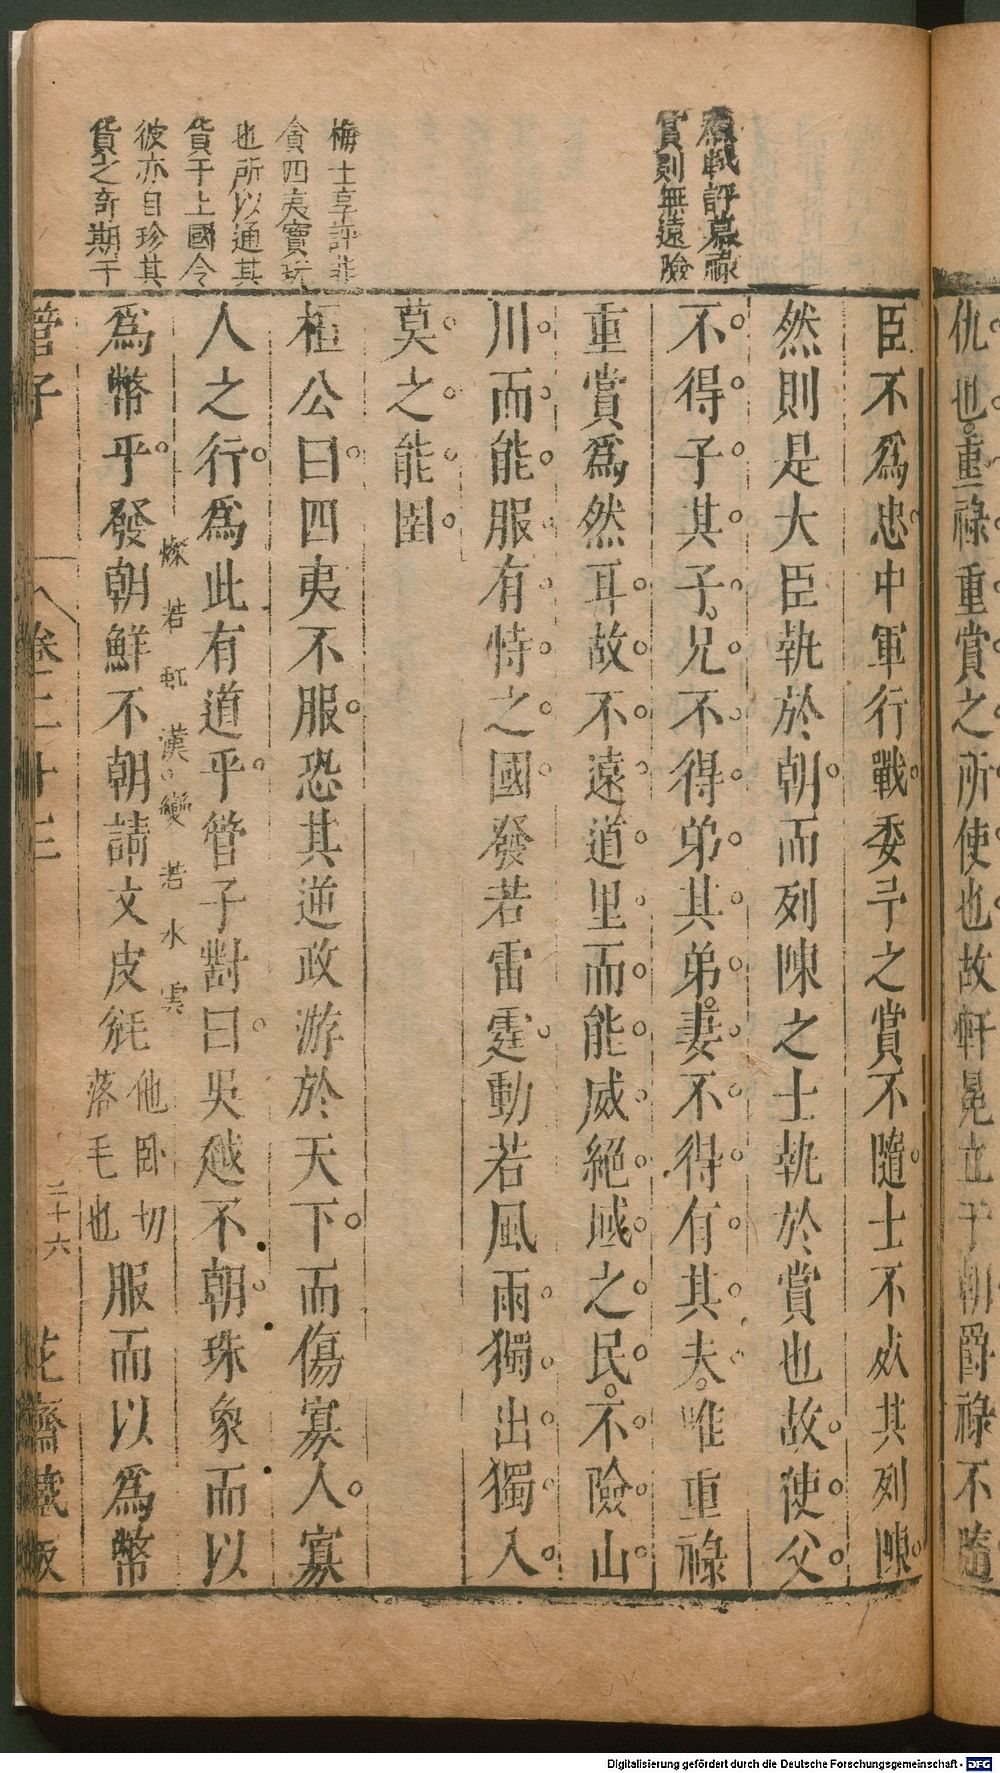 仇也重祿重賞之所使也故軒冕立于朝爵祿不隨
臣不爲忠中軍行戰委予之賞不隨士不死其列陳
然則是大臣執於朝而列陳之士執於賞也故使父
不得子其子兄不得弟其弟妻不得有其夫唯重祿
重賞爲然耳故不遠道里而能威絕域之民不險山
川而能服有恃之國發若雷霆動若風雨獨出獨入
莫之能圉
桓公曰四夷不服恐其逆政游於天下而傷寡人寡
人之行爲此有道乎管子對曰吳越不朝珠象而以
爲幣乎發朝鮮不朝請文皮毤他卧切落毛也服而以爲幣
評慕祿
賞則無遠險
梅士享評非
貪四夷寶玩
也所以通其
貨于上國令
彼亦自珍其
貨之奇期于
燦若虹漢變若水雲
管子
卷二十三
二十六
花齋藏板
Digitalisierung gefördert durch die Deutsche Forschungsgemeinschaft - DFG